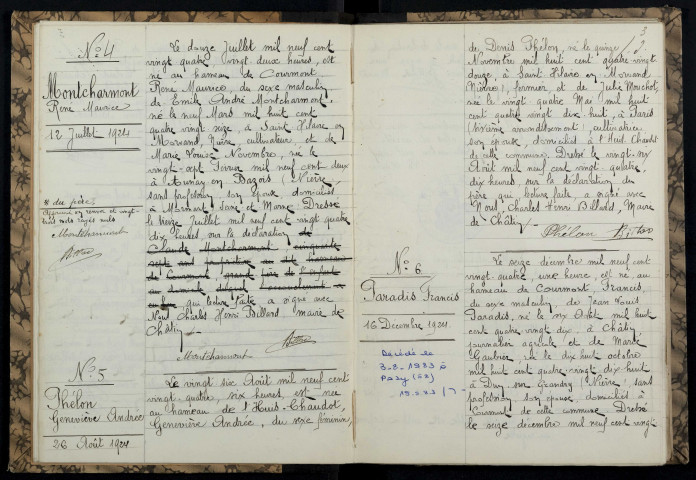 N° 4
Montcharmont
René Maurice
12 Juillet 1924
* du père
Approuvé en renvoi et vingt
huit mots rayés nuls
Montcharmont
Le douze Juillet mil neuf cent
vingt quatre, vingt deux heures, est
né au hameau de Courmont
René Maurice, du sexe masculin
de Emile André Montcharmont,
né le neuf Mars mil huit cent
quatre vingt seize, à Saint Hilaire en
Morvand, Nièvre, cultivateur, et de
Marie Louise Novembre, née le
vingt-sept Février mil neuf cent deux
à Aunay en Bazois (Nièvre),
sans profession, son épouse, domiciliés
à
Dressé
le treize Juillet mil neuf cent vingt quatre
dix heures, sur la déclaration
Claude Montcharmont cinquante
sept ans
de Courmont grand-père de l'enfant
qui, lecture faite a signé avec
Nous Charles Henri Billard, maire de
Châtin
Montcharmont
N° 5
Phélon
Geneviève Andrée
26 Août 1924
Le vingt six Août mil neuf cent
vingt-quatre, six heures, est née
au hameau de l'Huis-Chaudot,
Geneviève Andrée, du sexe féminin,
3
de Denis Phélon, né le quinze
Novembre mil huit cent quatre vingt
douze, à Saint Hilaire en Morvand
(Nièvre), fermier et de Julie Mouchot,
née le vingt quatre Mai mil huit
cent quatre vingt dix huit, à Paris
arrondissement), cultivatrice,
son épouse, domiciliés à l'Huis Chaudot
de cette commune. Dressé le vingt-six
Août mil neuf cent vingt-quatre,
dix heures, sur la déclaration du
père qui, lecture faite, a signé avec
Nous Charles Henri Billard, Maire
de Châtin
Phélon
N° 6
Paradis Francis
16 Décembre 1924
Décédé le
3-8-1983 à
Pazy (58)
Le seize décembre mil neuf cent
vingt-quatre, une heure, est né, au
hameau de Courmont, Francis,
du sexe masculin, de Jean Louis
Paradis, né le six Août mil huit
cent quatre vingt dix, à Châtin,
journalier agricole et de Marie
Gaubier, née le dix huit octobre
mil huit cent quatre-vingt dix-huit
à Dun sur Grandry (Nièvre), sans
profession, son épouse, domiciliés à
Courmont de cette commune. Dressé
le seize décembre mil neuf cent vingt-